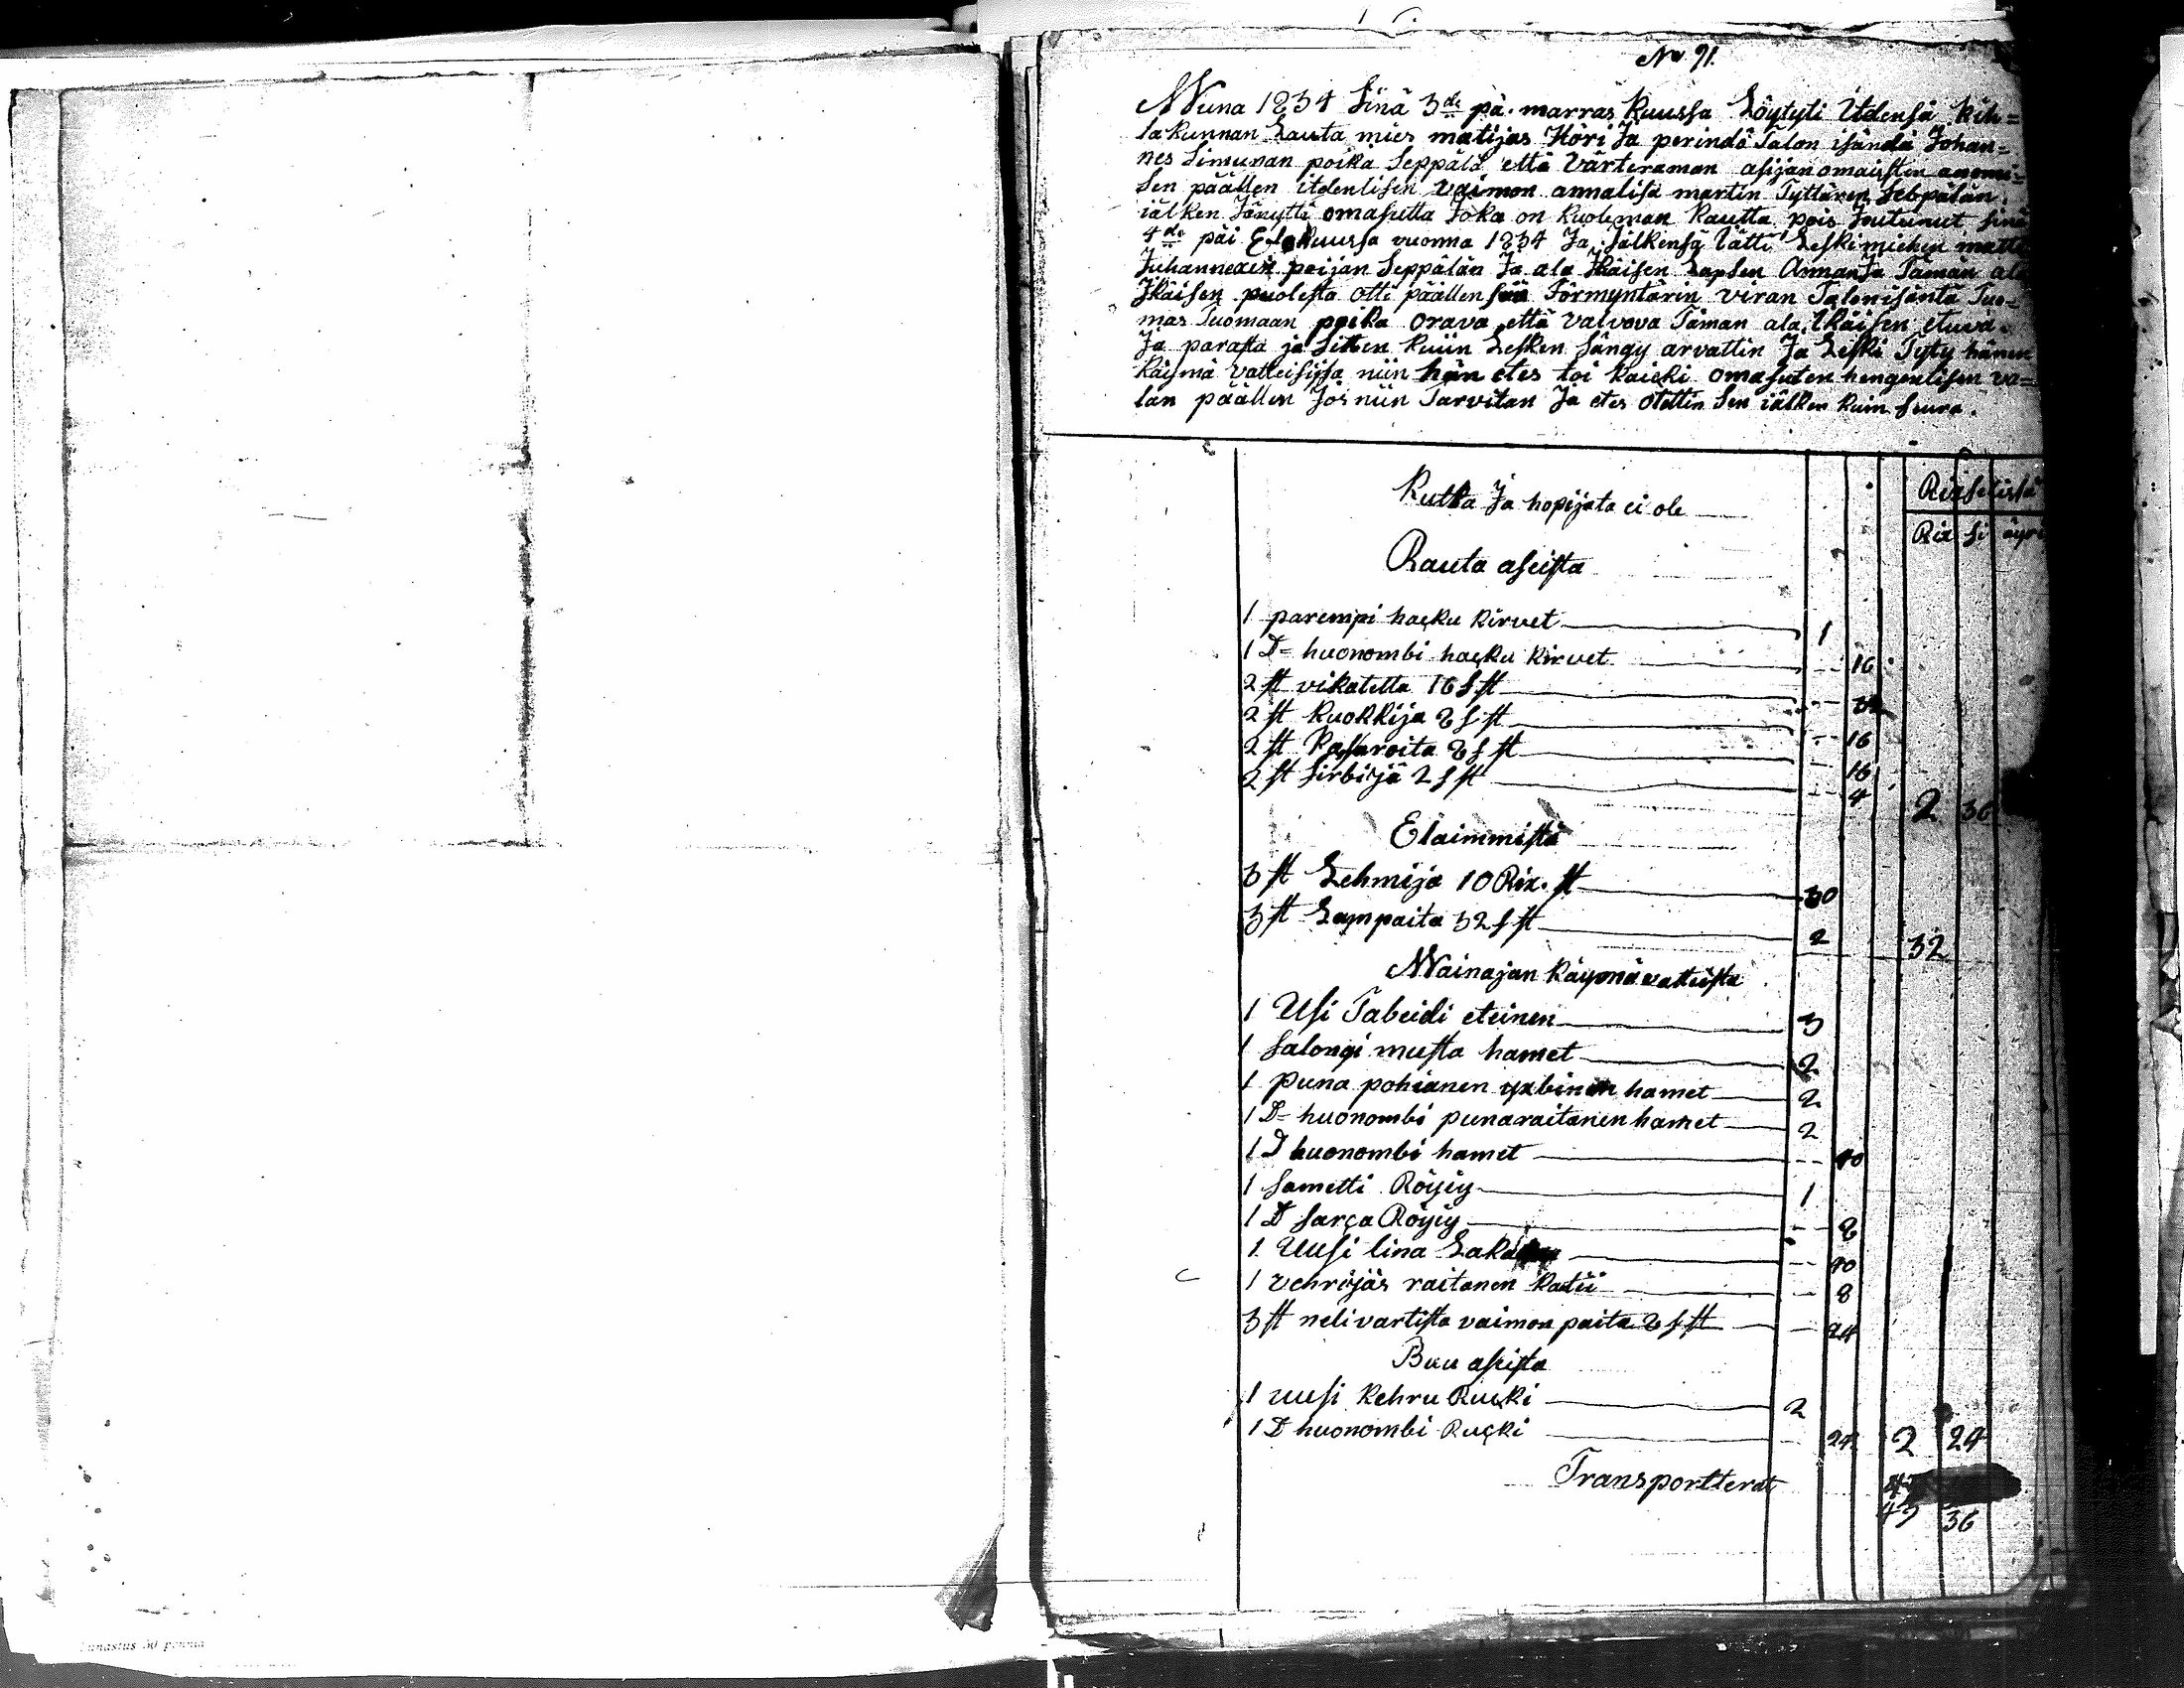 No 91.
Wuna 1834 Sinä 3de pä. marras kuussa Löytyti itdensä kih=
lakunnan Lauta mies matijas Höri Ja perindö Talon isändä Johan=
nes Simunan poika Seppälä että Värteraman asijanomaisten anomi=
sen päällen itdenlisen vaimon annalisa martin Tyttären Sebpälän
iälken Jänytti omasutta Joka on kuoleman kautta pois Joutunut sinä
4de päi Elokuussa vuonna 1834 Ja Jälkensä lätti Leskimiehen
Juhannexen poijan Seppälän Ja ala Jkäisen Lapsen Annan Ja Tämän ala
Jkäisen puolesta otti päällensä Förmyntärin viran Talonisäntä Tuo=
mas Tuomaan poika orava että valvova Täman ala Ikäisen etuva.
Ja parasta ja sitten kuiin Lesken sängy arvattin Ja Leski Tyty hänen
käymä vatteisijsa niin hän etes toi kaicki omasuten hengenlisen va=
lan päällen Jos niin Tarvitan Ja etes otettin sen iälken kuin seura.
Rutta Ja hopijata ei ole
Rixselissä
Rix si äyri
Rauta aseista
1 parempi hacku kirvet 1
1 D= huonombi hacku kirvet 16
2 st vikatetta 16 s st 32
2 st kuokkija 8 s st 16
2 st kasaroita 8 s st 16
2 st sirbijä 2 s st 4 2 36
Elaimmistä
3 st Lehmijä 10 Rix. st 30
3 st Lampaita 32 s st 2 32
Wainajan käymävatteista
1 Usi Tabeidi eteinen 3
1 salongi musta hamet 2
1 puna pohianen yxbinen hamet 2
1 D= huonombi punaraitanen hamet 2
1 D huonombi hamet 40
1 sametti Röijy 1
1 D sarca Röijy 8
1 Uusi lina 40
1 vehrijäs raitanen 8
3 st nelivartista vaimon paita 8 s st 24
Buu aseista
1 uusi Kehru Rucki 2
1 D huonombi Rucki 24 2 24
Transportterat
49 36
Lunastus 50 penniä